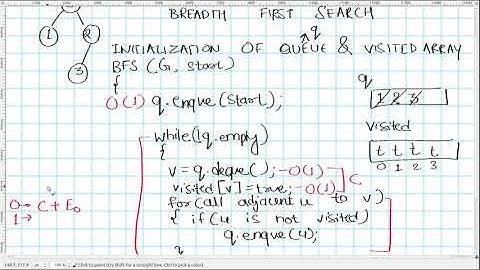 BREADTH FIRST SEARCH
q
INITIALIZATION OF QUEUE & VISITED ARRAY
BFS (G, start)
{
O(1) q.enque(start);
while(!q.empty)
{
v = q.deque(); -O(1)
visited[v]=true; -O(1) C
for(all adjacent u to v)
{ if(u is not visited)
q.enque(u);
1 2
3
q
1 2 3
visited
t t t t
0 1 2 3
0→ C + E0
1→